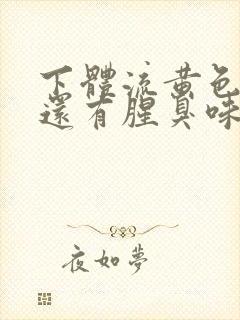 下體流黃色
還有腥臭味
夜如夢